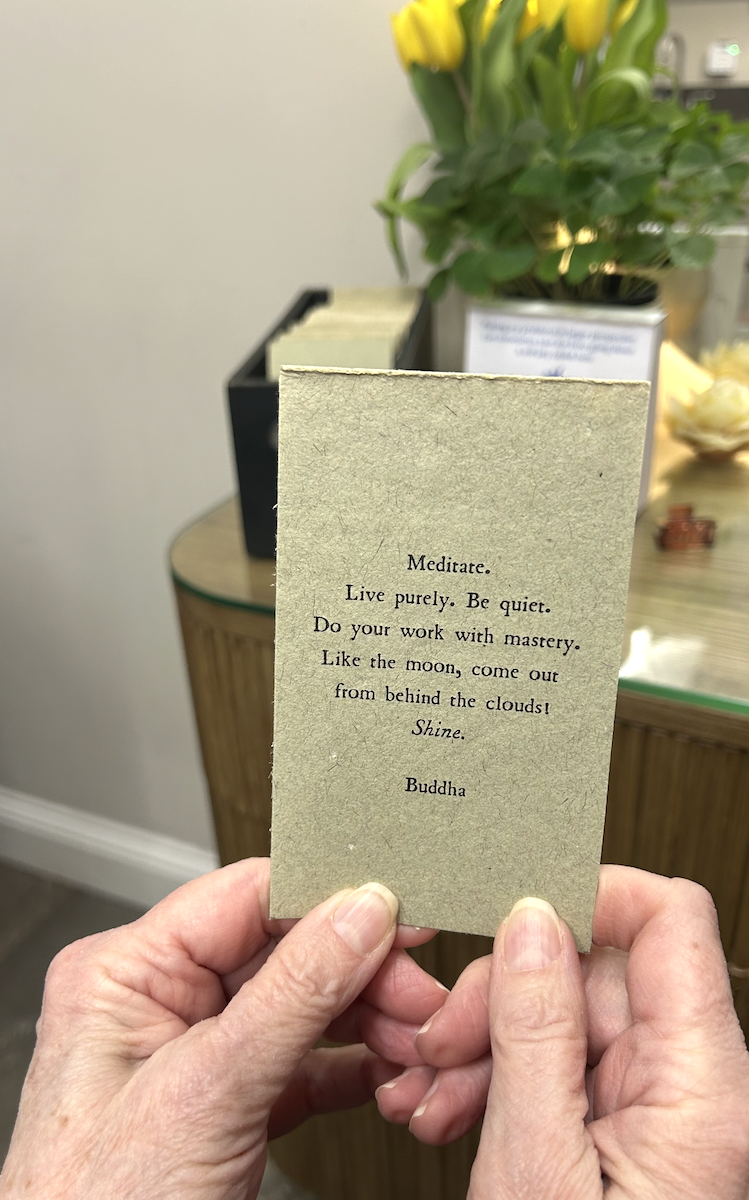 Meditate.
Live purely. Be quiet.
Do your work with mastery.
Like the moon, come out
from behind the clouds!
Shine.
Buddha